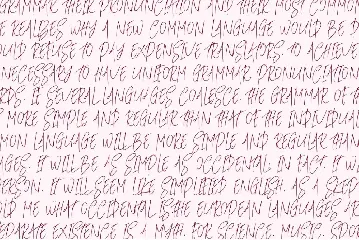 GRAMMAR, THEIR PRONUNCIATION AND THEIR MOST COMMON
E REALIZES WHY A NEW COMMON LANGUAGE WOULD BE D
OULD REFUSE TO PAY EXPENSIVE TRANSLATORS TO ACHIEVE
NECESSARY TO HAVE UNIFORM GRAMMAR, PRONUNCIATION
RDS. IF SEVERAL LANGUAGES COALESCE, THE GRAMMAR OF T
MORE SIMPLE AND REGULAR THAN THAT OF THE INDIVIDUAL
MON LANGUAGE WILL BE MORE SIMPLE AND REGULAR THAN
AGES. IT WILL BE AS SIMPLE AS OCCIDENTAL IN FACT, IT W
PERSON, IT WILL SEEM LIKE SIMPLIFIED ENGLISH, AS A SKEP
OLD ME WHAT OCCIDENTAL IS. THE EUROPEAN LANGUAGES AR
EPARATE EXISTENCE IS A MYTH. FOR SCIENCE, MUSIC, SPOR